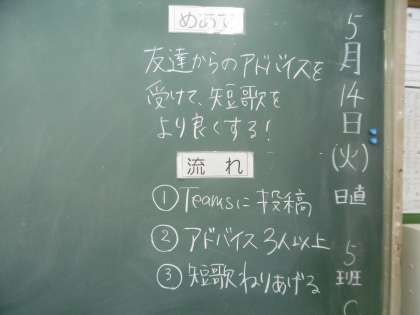 めあて
友達からのアドバイスを
受けて、短歌を
より良くする!
流れ
①Teamsに投稿
②アドバイス3人以上
③短歌ねりあげる
5月14日(火)
日直
5班